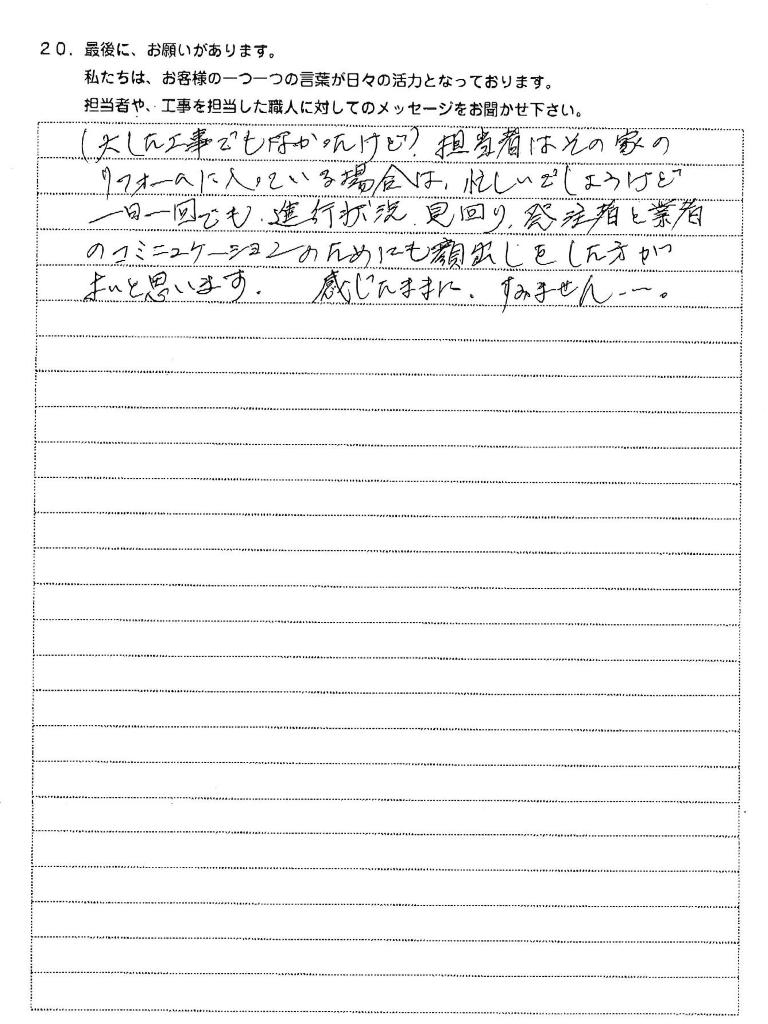 20. 最後に、お願いがあります。
私たちは、お客様の一つ一つの言葉が日々の活力となっております。
担当者や、工事を担当した職人に対してのメッセージをお聞かせ下さい。
(大した工事でもなかったけど) 担当者はその家の
リフォームに入っている場合は、忙しいでしょうけど
一日一回でも、進行状況、見回り、発注者と業者
のコミニュケーションのためにも顔出しをした方が
よいと思います。 感じたままに、すみません--〜。